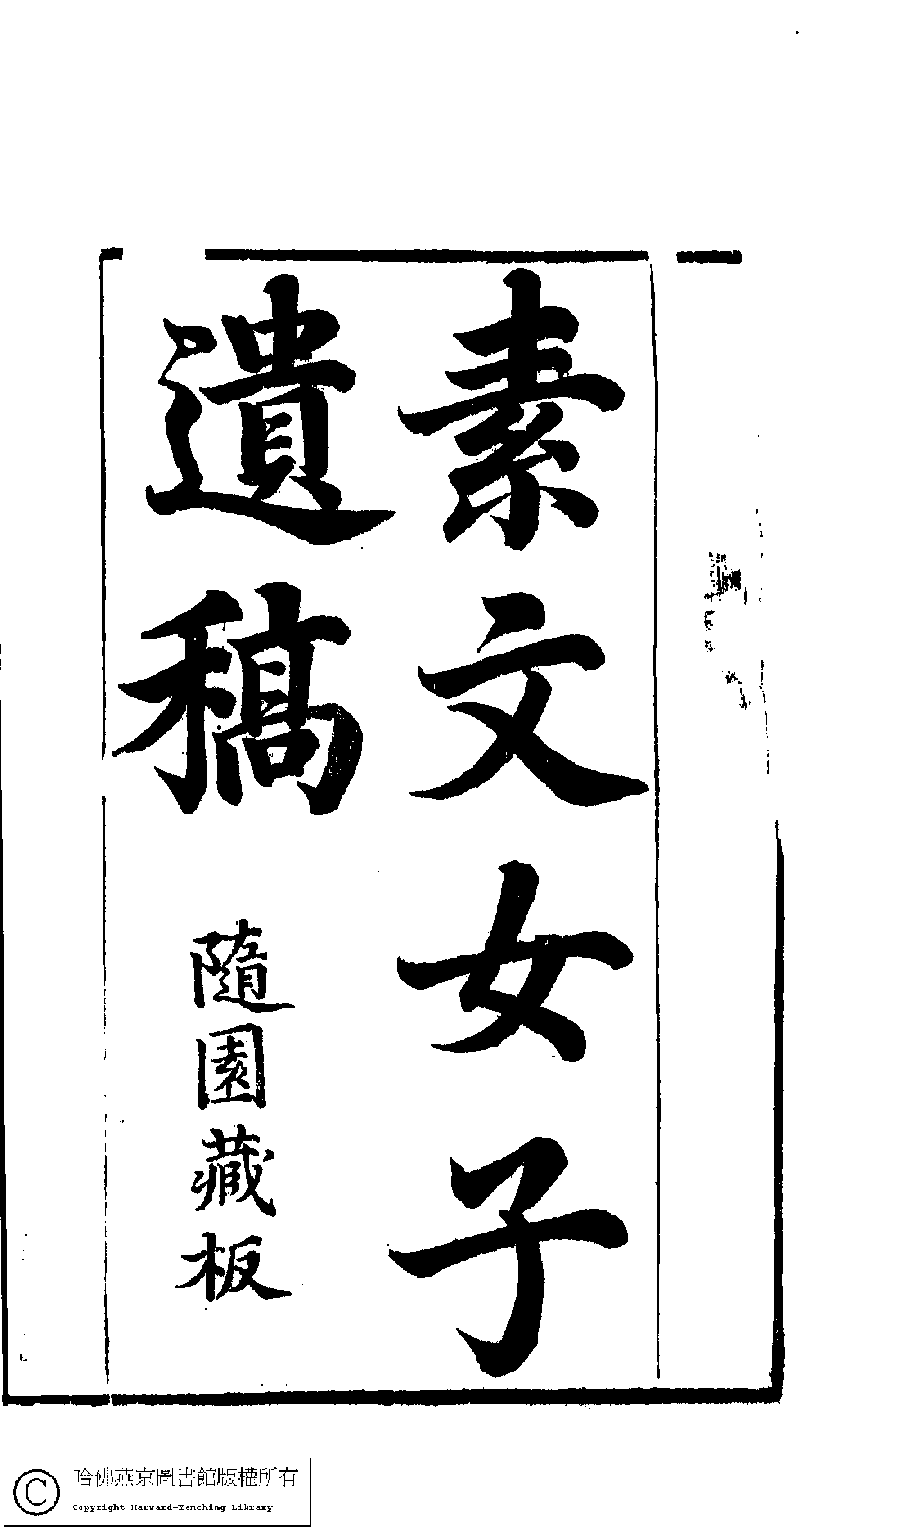 素文女子
遺稿
隨園藏板
哈佛燕京圖書館版權所有
Copyright Harvard-Yenching Library